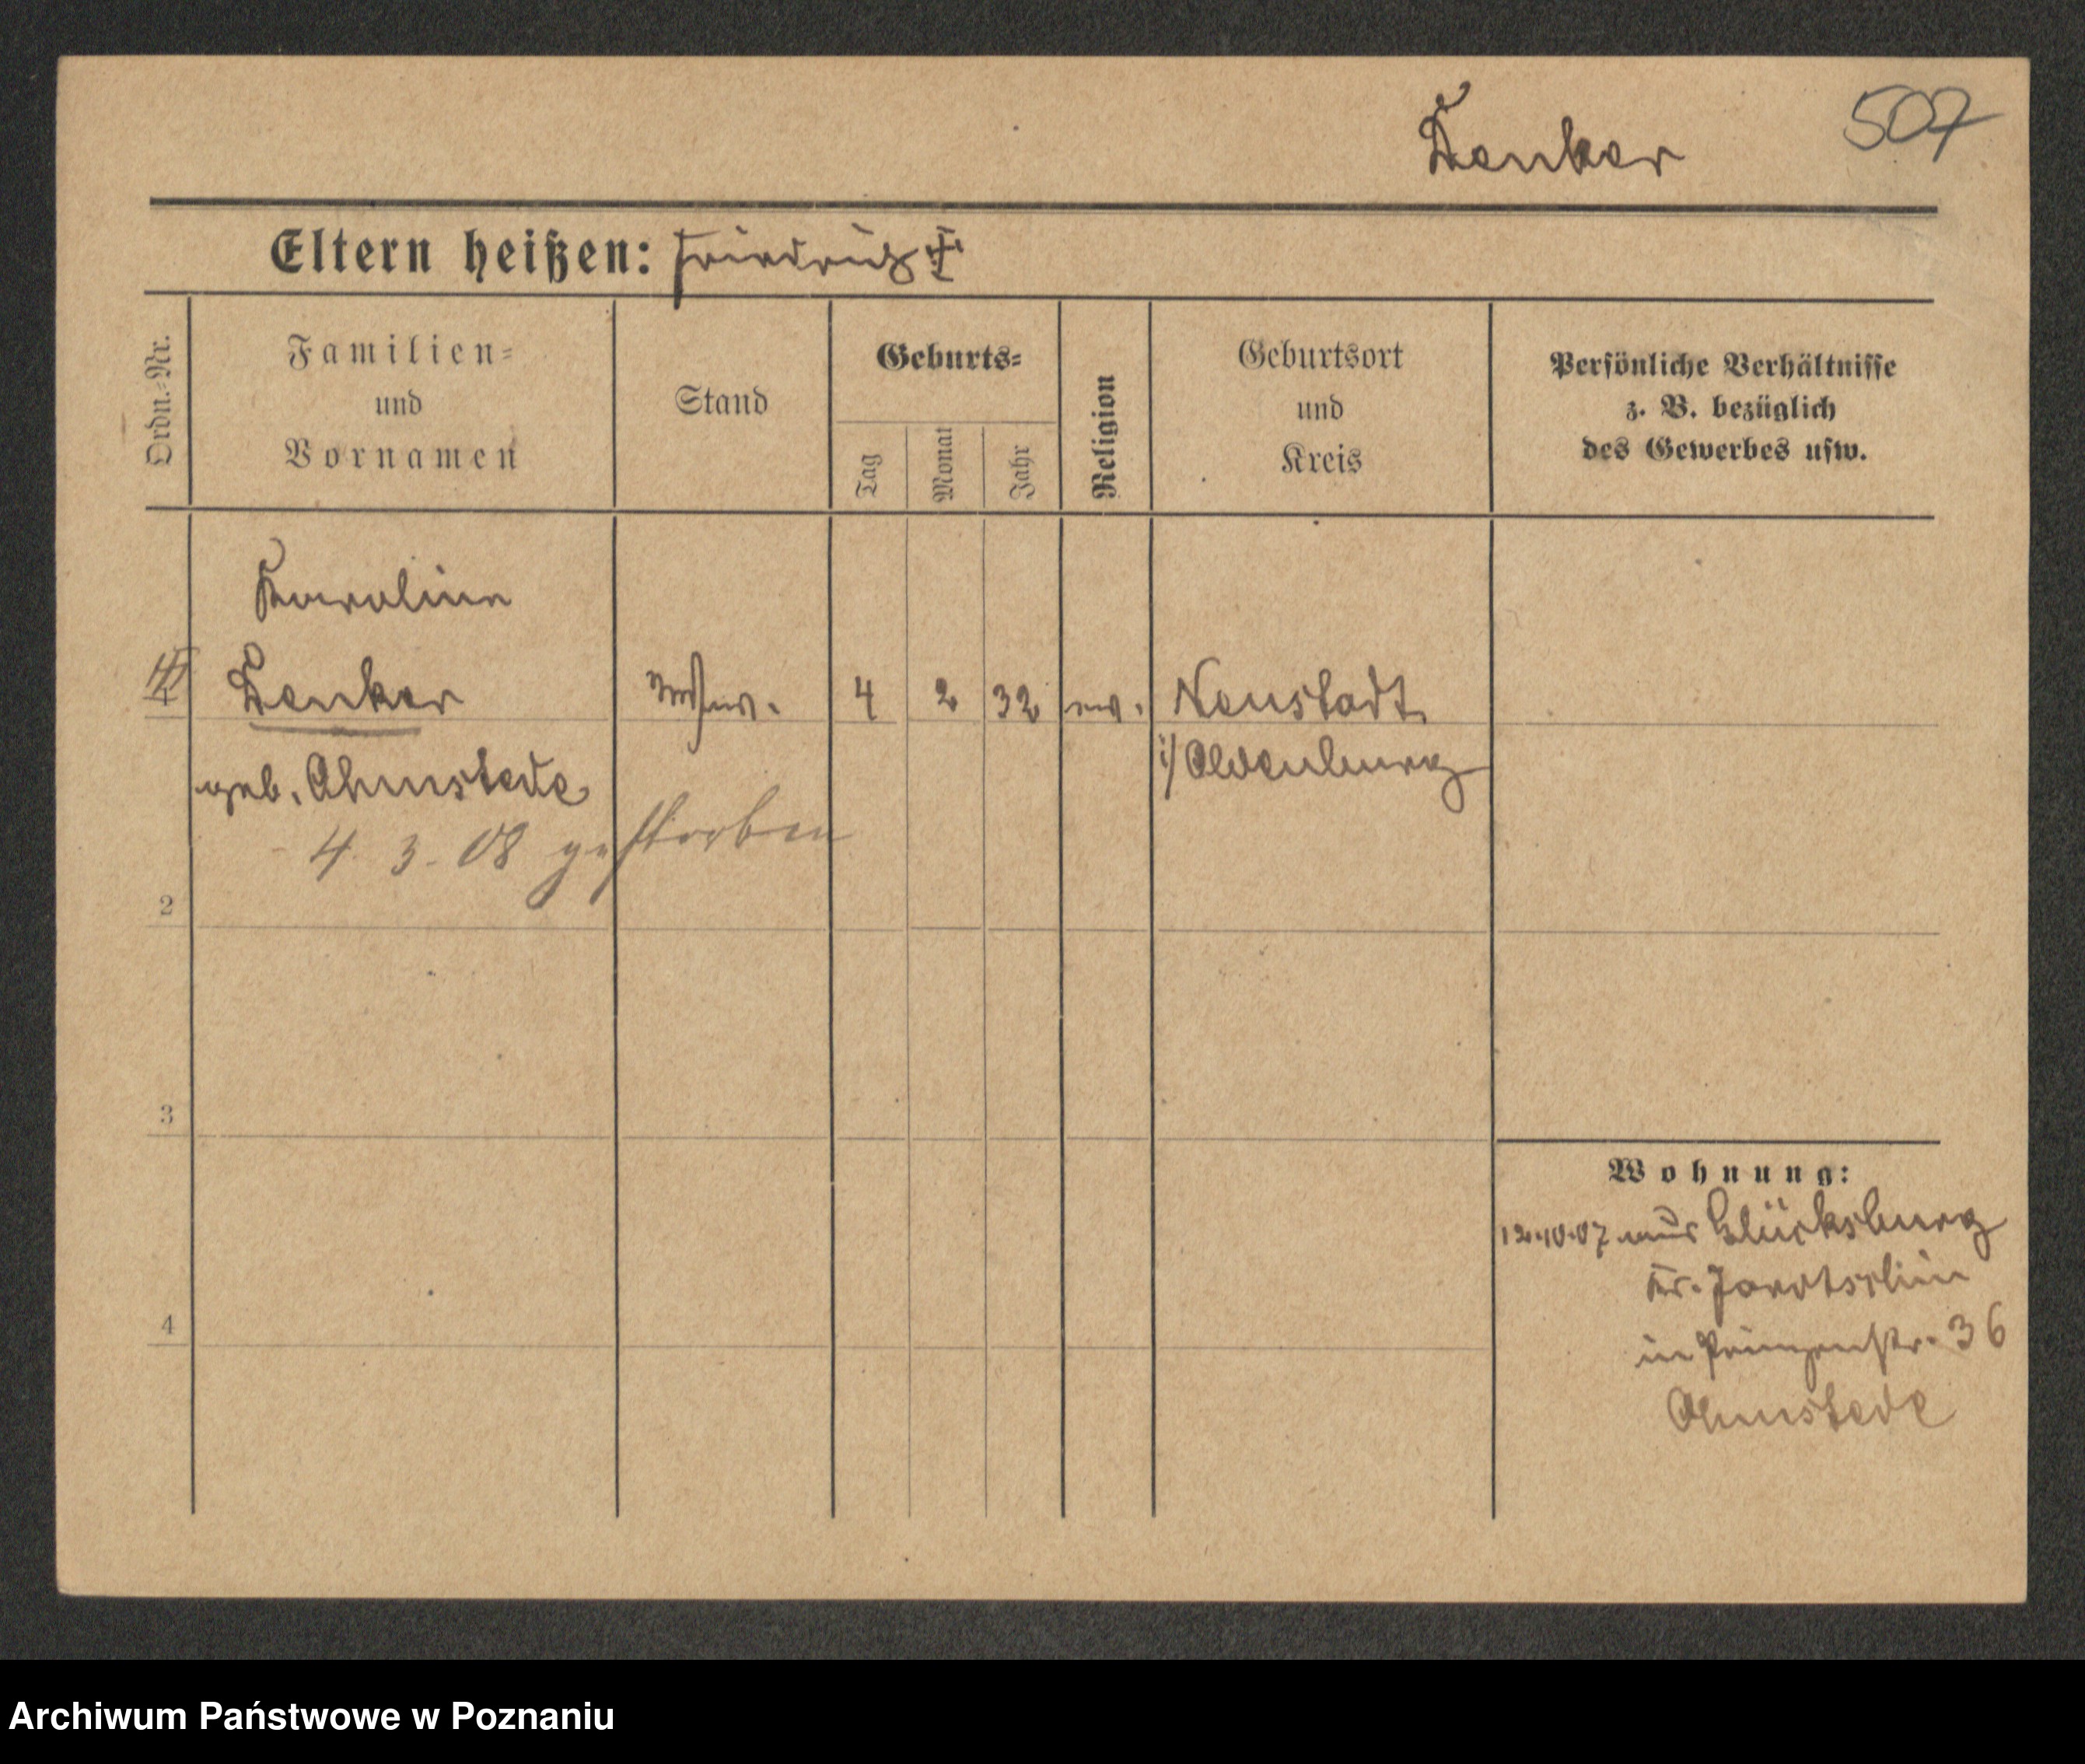 Denker 507
Eltern heißen: Friedrich ‡
Ordn.-Nr.
Familien-
und
Vornamen
Stand
Geburts-
Tag
Monat
Jahr
Religion
Geburtsort
und
Kreis
Persönliche Verhältnisse
z. B. bezüglich
des Gewerbes usw.
Karoline
1 Denker 4 2 32 ev. Neustadt
geb. Ahmstede i/ Oldenburg
4. 3. 08 gestorben
2
3
4
Wohnung:
12.10.07 aus Glücksburg
Kr. Jarotschin
in Prinzenstr. 36
Ahmstede
Archiwum Państwowe w Poznaniu